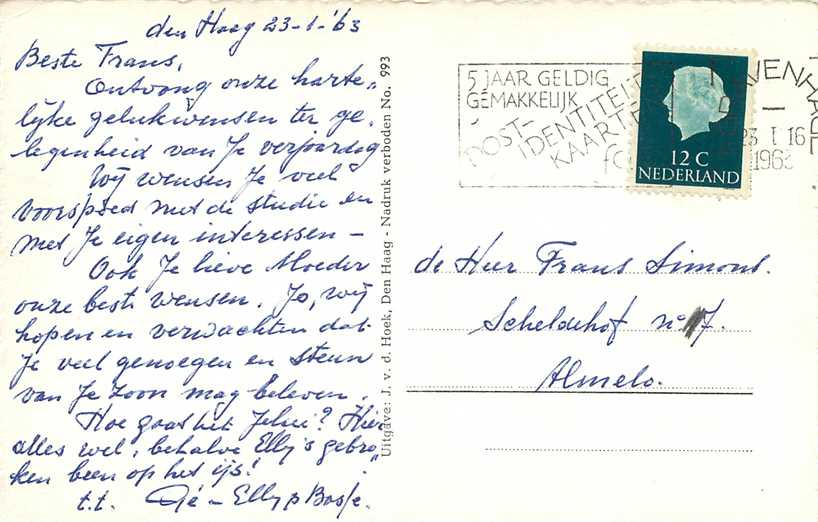 den Haag 23-1-'63
Beste Frans,
Ontvang onze harte„
lijke gelukwensen ter ge„
legenheid van Je verjaardag
Wij wensen Je veel
voorspoed met de studie en
met Je eigen interessen –
Ook Je lieve Moeder
onze beste wensen. Jo, wij
hopen en verwachten dat
Je veel genoegen en steun
van Je zoon mag beleven.
Hoe gaat het Jelui? Hier
alles wel, behalve Elly's gebro„
ken been op het ijs!
t.t. Gé – Elly
Uitgave: J. v. d. Hoek, Den Haag - Nadruk verboden No. 993
5 JAAR GELDIG
GEMAKKELIJK
POST-
IDENTITEITS
KAARTE
23 I 16
1963
12 C
NEDERLAND
de Heer Frans Simons.
Scheldehof no 7.
Almelo.